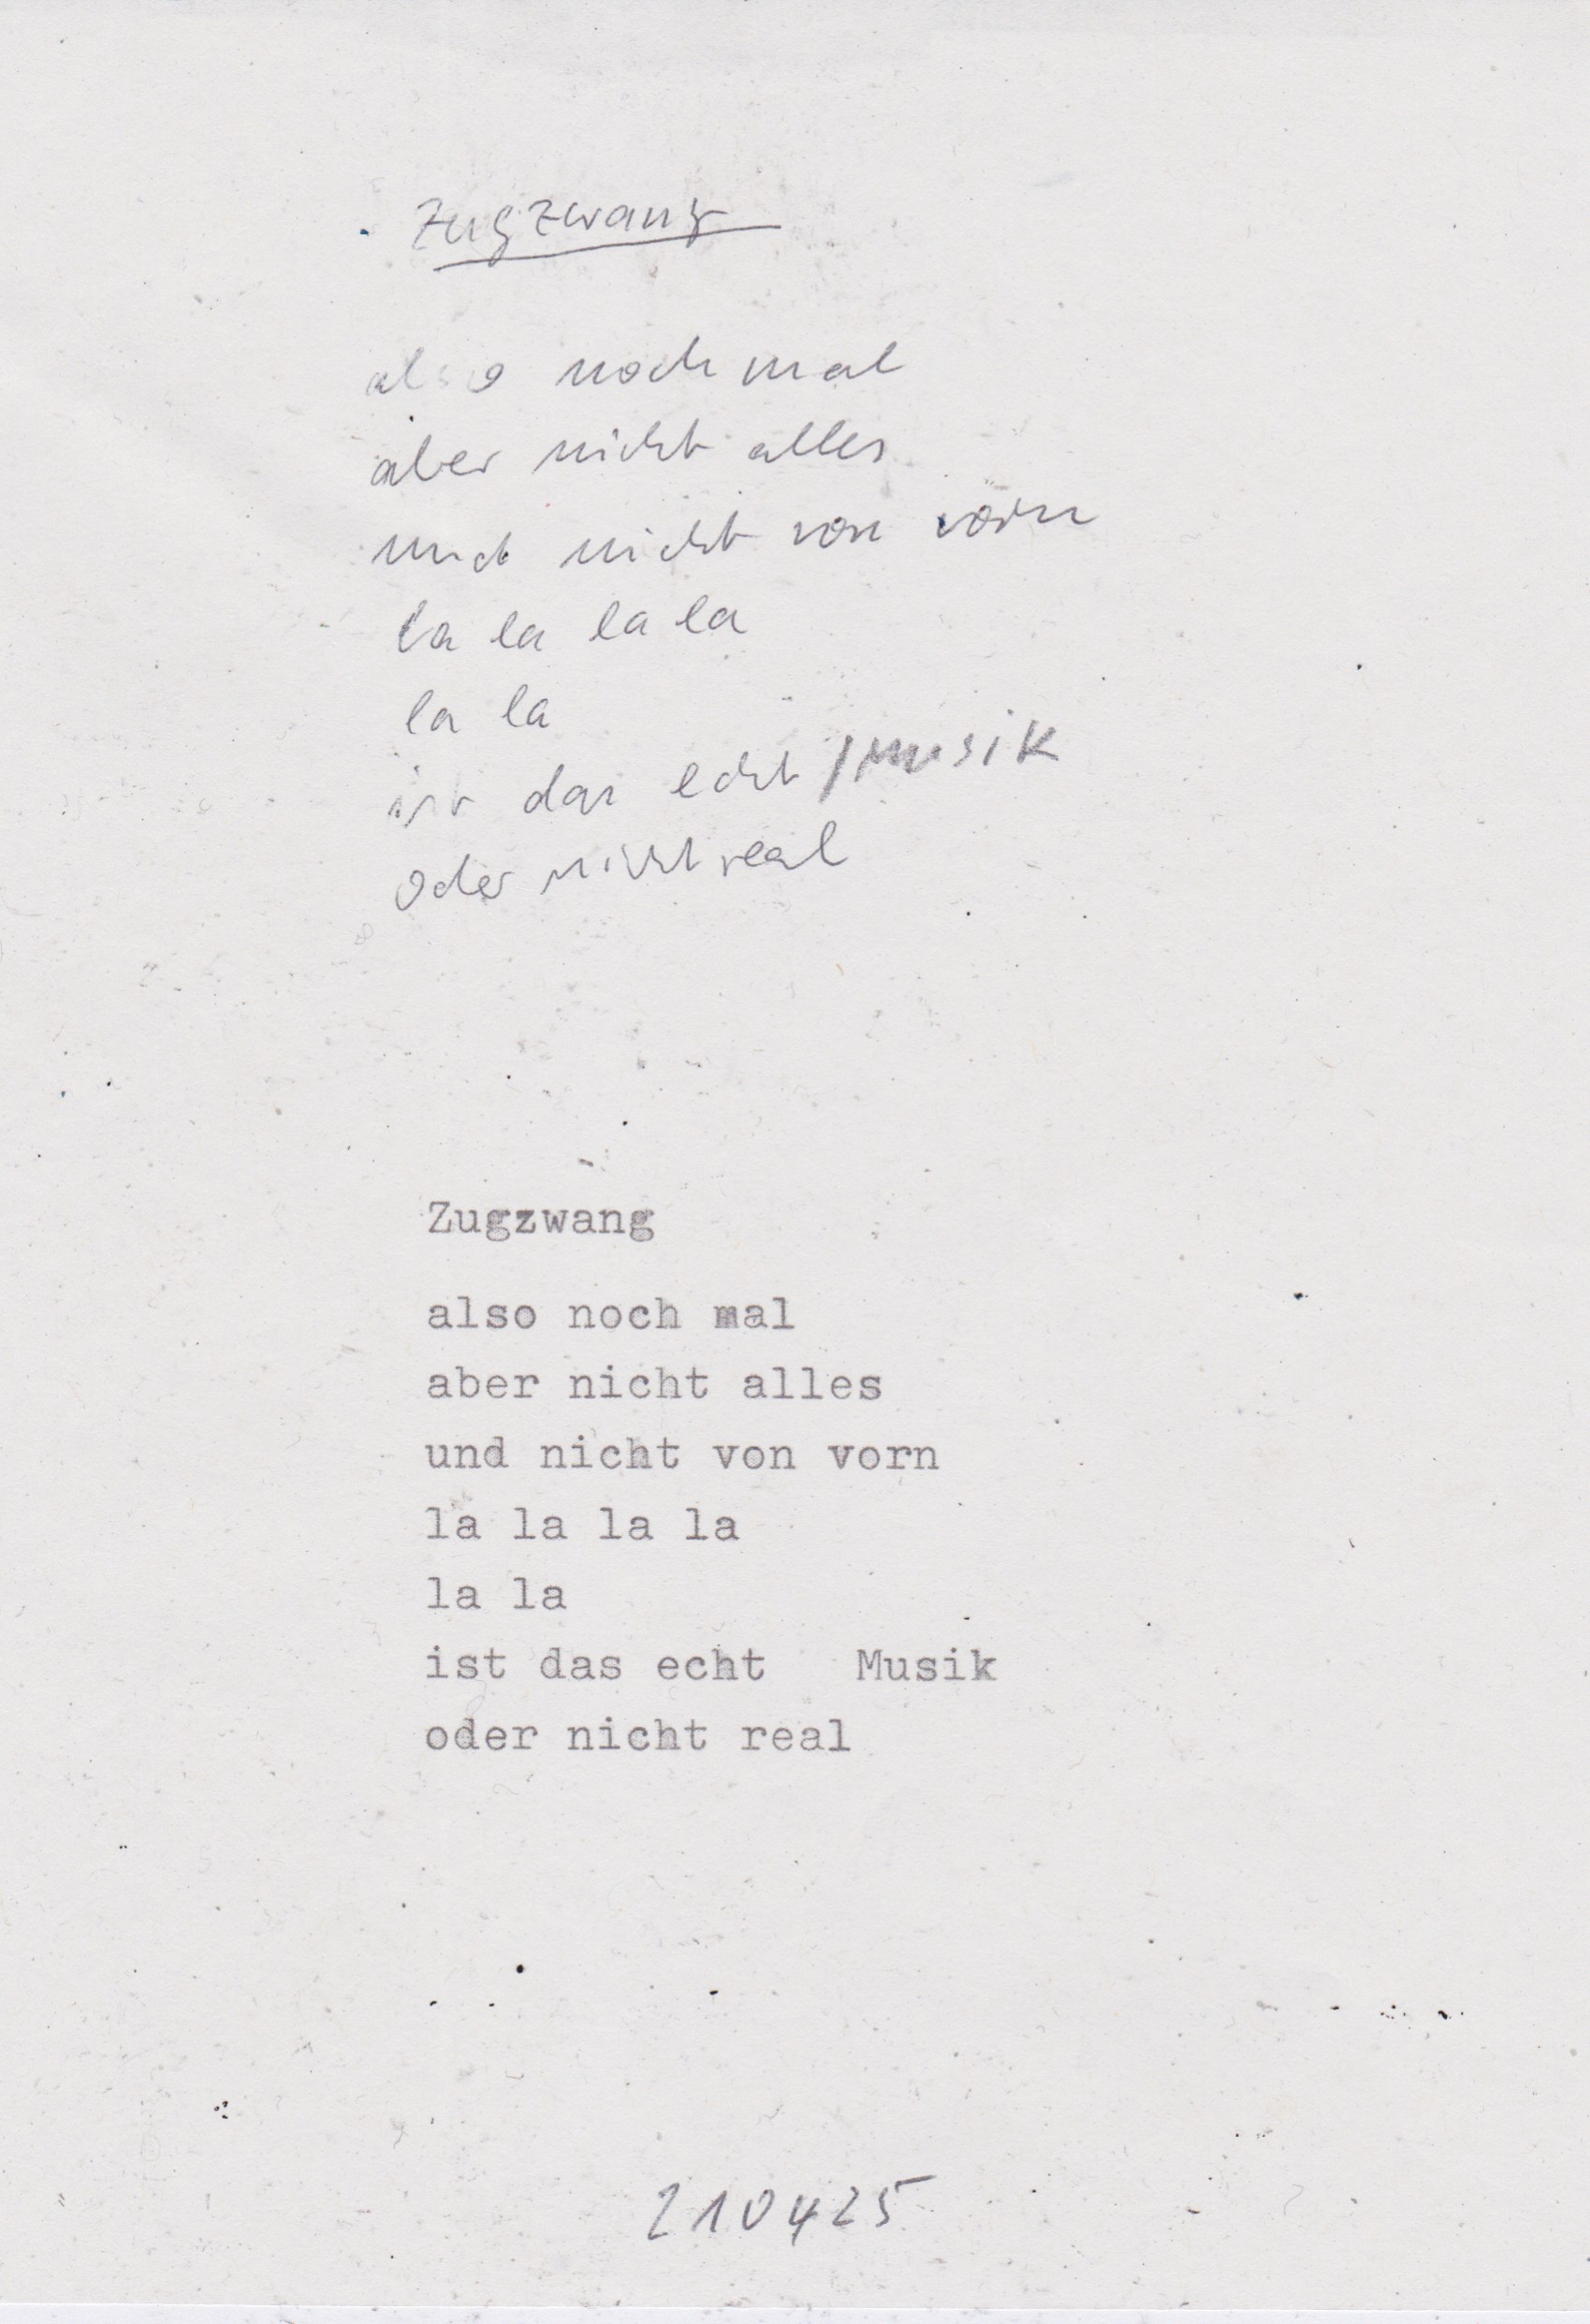 Zugzwang
also noch mal
aber nicht alles
und nicht von vorn
la la la la
la la
ist das echt / Musik
oder nicht real
Zugzwang
also noch mal
aber nicht alles
und nicht von vorn
la la la la
la la
ist das echt   Musik
oder nicht real
210425